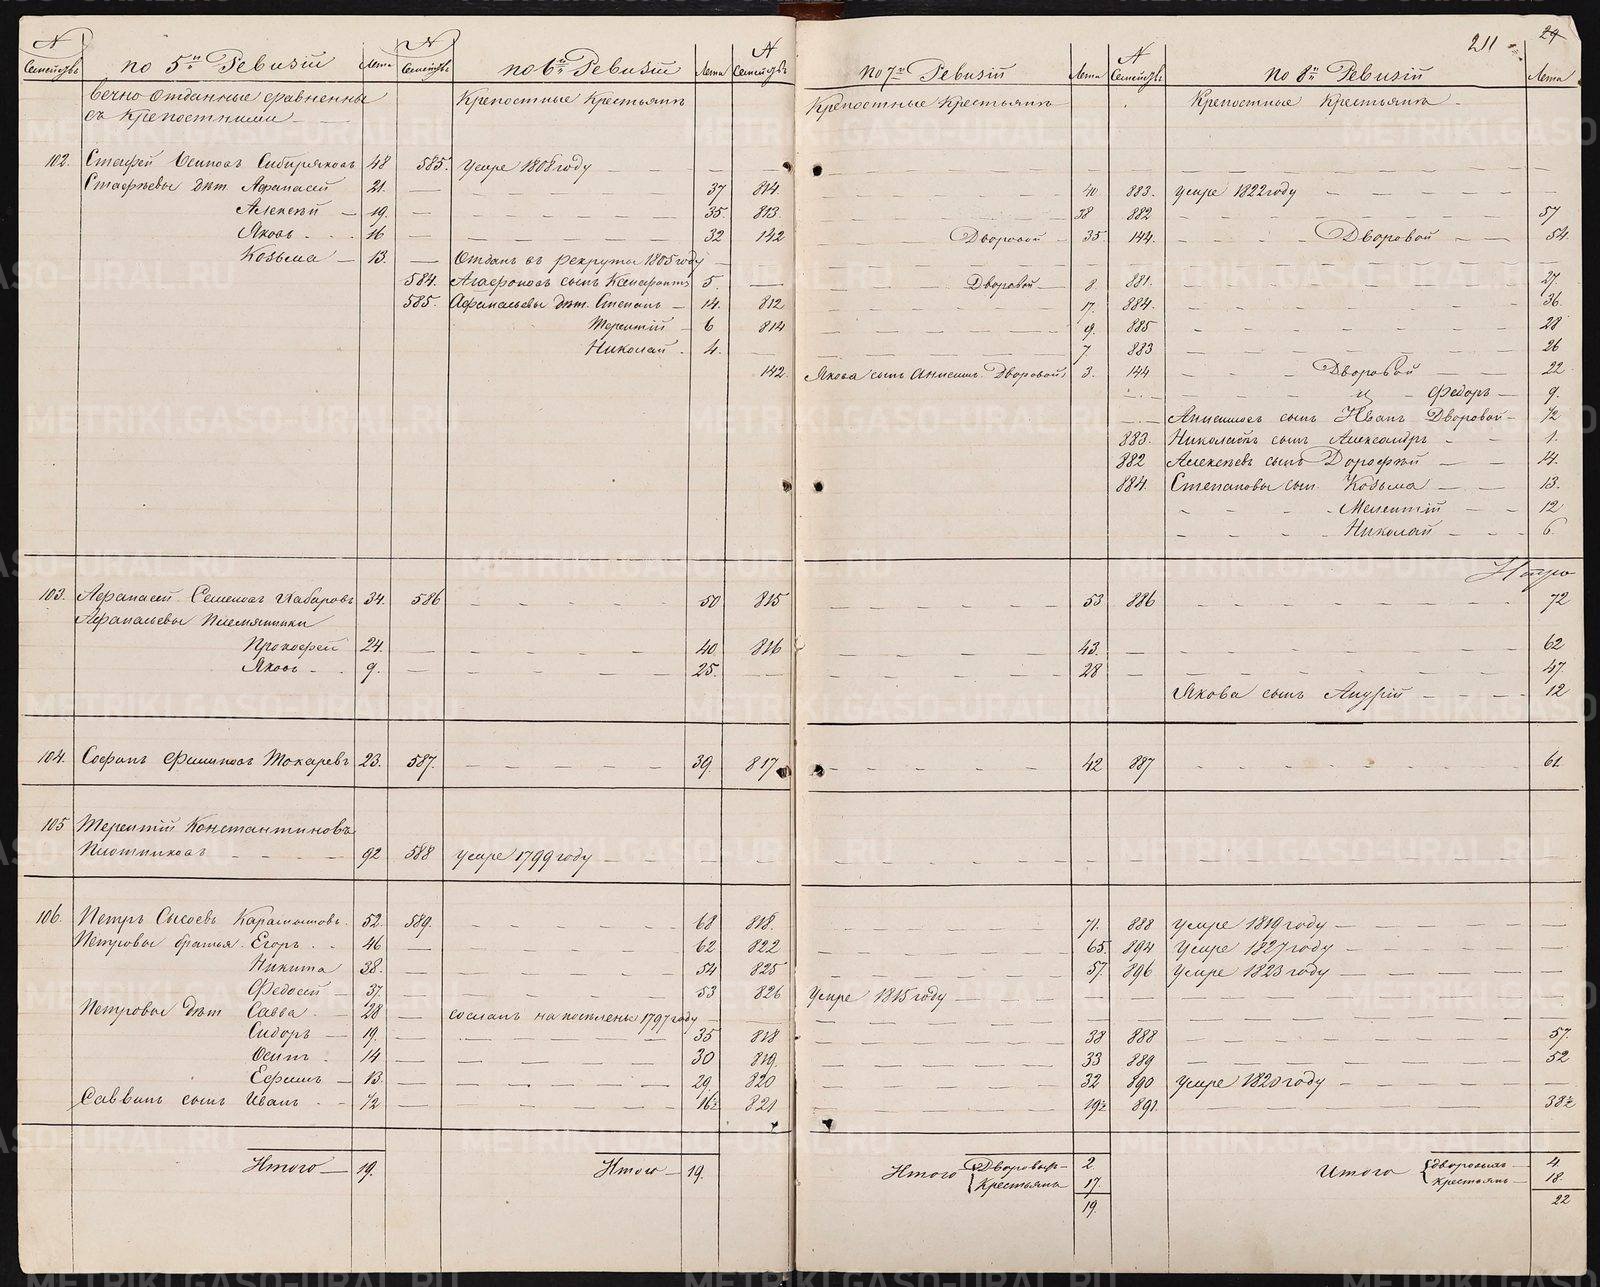 211 29
N Семействъ по 5й Ревизіи Лета N Семействъ по 6й Ревизіи Лета N Семействъ по 7й Ревизіи Лета N Семействъ по 8й Ревизіи Лета
Вечно отданные сравненны Крепостные Крестьянъ Крепостные Крестьянъ Крепостные Крестьянъ
съ крепостными
102. Осиповъ Сибиряковъ 48 585. умре 1808 году
дѣт. Афанасей 21. 37 814. 40 883. умре 1822 году
Алексѣй 19. 35 813. 38 882 57
Яковъ 16 32 142 Дворовой 35. 144. Дворовой 54
Козьма 13. Отданъ въ рекруты 1805 году
584. сынъ 5. Дворовой 8. 881. 27.
585. Афанасьевы дѣт. Степанъ 14. 812 17. 884. 36.
Терентій 6 814 9. 885 28
Николай 4. 7 883 26
142. Якова сынъ Дворовой 3. 144 Дворовой 22
Федоръ 9.
сынъ Иванъ Дворовой 1/2
883. Николаевъ сынъ Александръ 1.
882 Алексѣевъ сынъ Дорофѣй 14.
884. Степановы сын. Козьма 13.
Мелентій 12
Николай 6.
103. Афанасей Семеновъ Хабаровъ 34. 586 50 815 53 886 72
Афанасьевы Племянники
Прокофей 24. 40. 816 43. 62
Яковъ 9. 25. 28 47.
Якова сынъ 12
104. Софонъ Филиповъ Токаревъ 23. 587. 39. 817 42 887 61.
105 Терентій Константиновъ
Плотниковъ 92 588 умре 1799 году
106. Петръ Сысоевъ 52. 589. 68 818. 71. 888 Умре 1819 году
Петровы братья Егоръ 46 62 822 65. 894 Умре 1827 году
Никита 38. 54 825 57. 896 Умре 1823 году
Федосей 37. 53 826 Умре 1815 году
Петровы дѣт Савва 28 сосланъ на поселенье 1797 году
Сидоръ 19. 35 818 38 888 57.
Осипъ 14 30 819. 33 889 52
Ефимъ 13. 29. 820 32 890 умре 1820 году
Саввинъ сынъ Иванъ 1/2 16½ 821 19½ 891. 38½
Итого 19. Итого 19. Итого Дворовых 2. Итого дворовых 4.
Крестьянъ 17. крестьянъ 18.
19. 22
METRIKI.GASO-URAL.RU